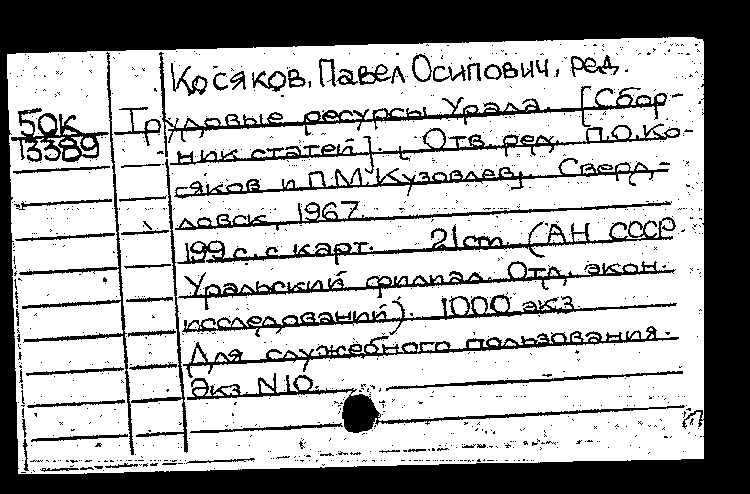 Косяков, Павел Осипович, ред.
50к Трудовые ресурсы Урала. [Сбор-
13389 ник статей]. [Отв. ред. П.О. Ко-
сяков и П.М. Кузовлев]. Сверд-
ловск, 1967.
199 с. с карт. 21 cm (АН СССР
Уральский филиал. Отд. экон.
исследований). 1000 экз.
Для служебного пользования.
Экз. N 10.